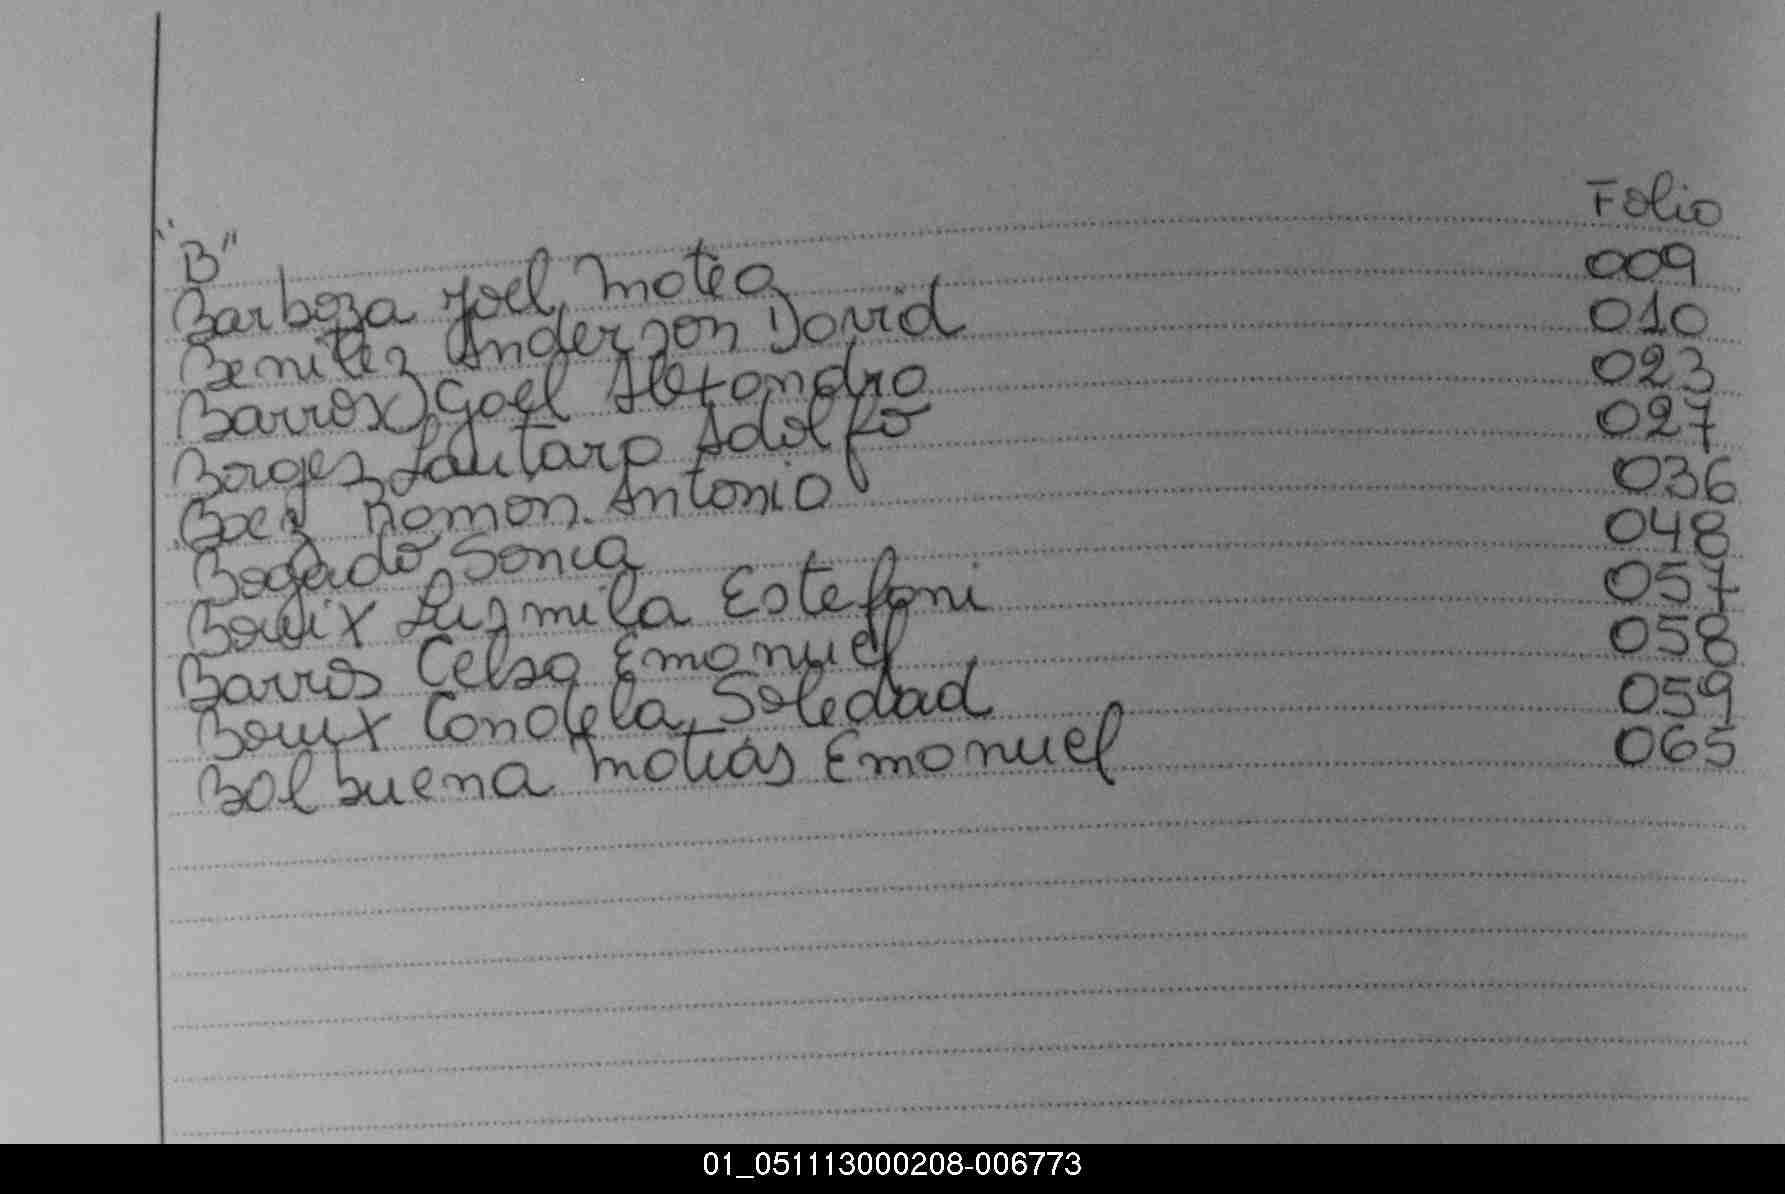 Folio
"B"
Barboza Joel Mateo 009
Benitez Anderson David 010
Barrox Gael Alexandro 023
Borges Lautaro Adolfo 027
Baez Ramon Antonio 036
Bogado Sonia 048
Luzmila Estefani 057
Barros Celso Emanuel 058
Candela Soledad 059
Balbuena Matias Emanuel 065
01_051113000208-006773